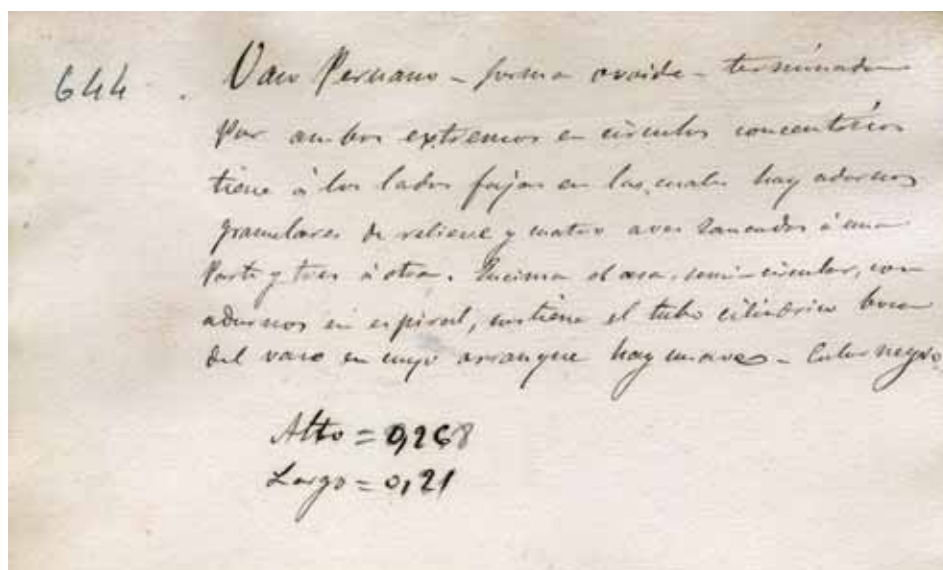 644. Vaso Peruano - forma ovoide - terminada
por ambos extremos en círculos concentricos
tiene á los lados fajas en las cuales hay adornos
granulares de relieve y cuatro aves á una
parte y tres á otra. Encima el asa, semi-circular, con
adornos en espiral, sostiene el tubo cilindrico boca
del vaso en cuyo arranque hay un aves - Color negro
Alto = 0,268
Largo = 0,21